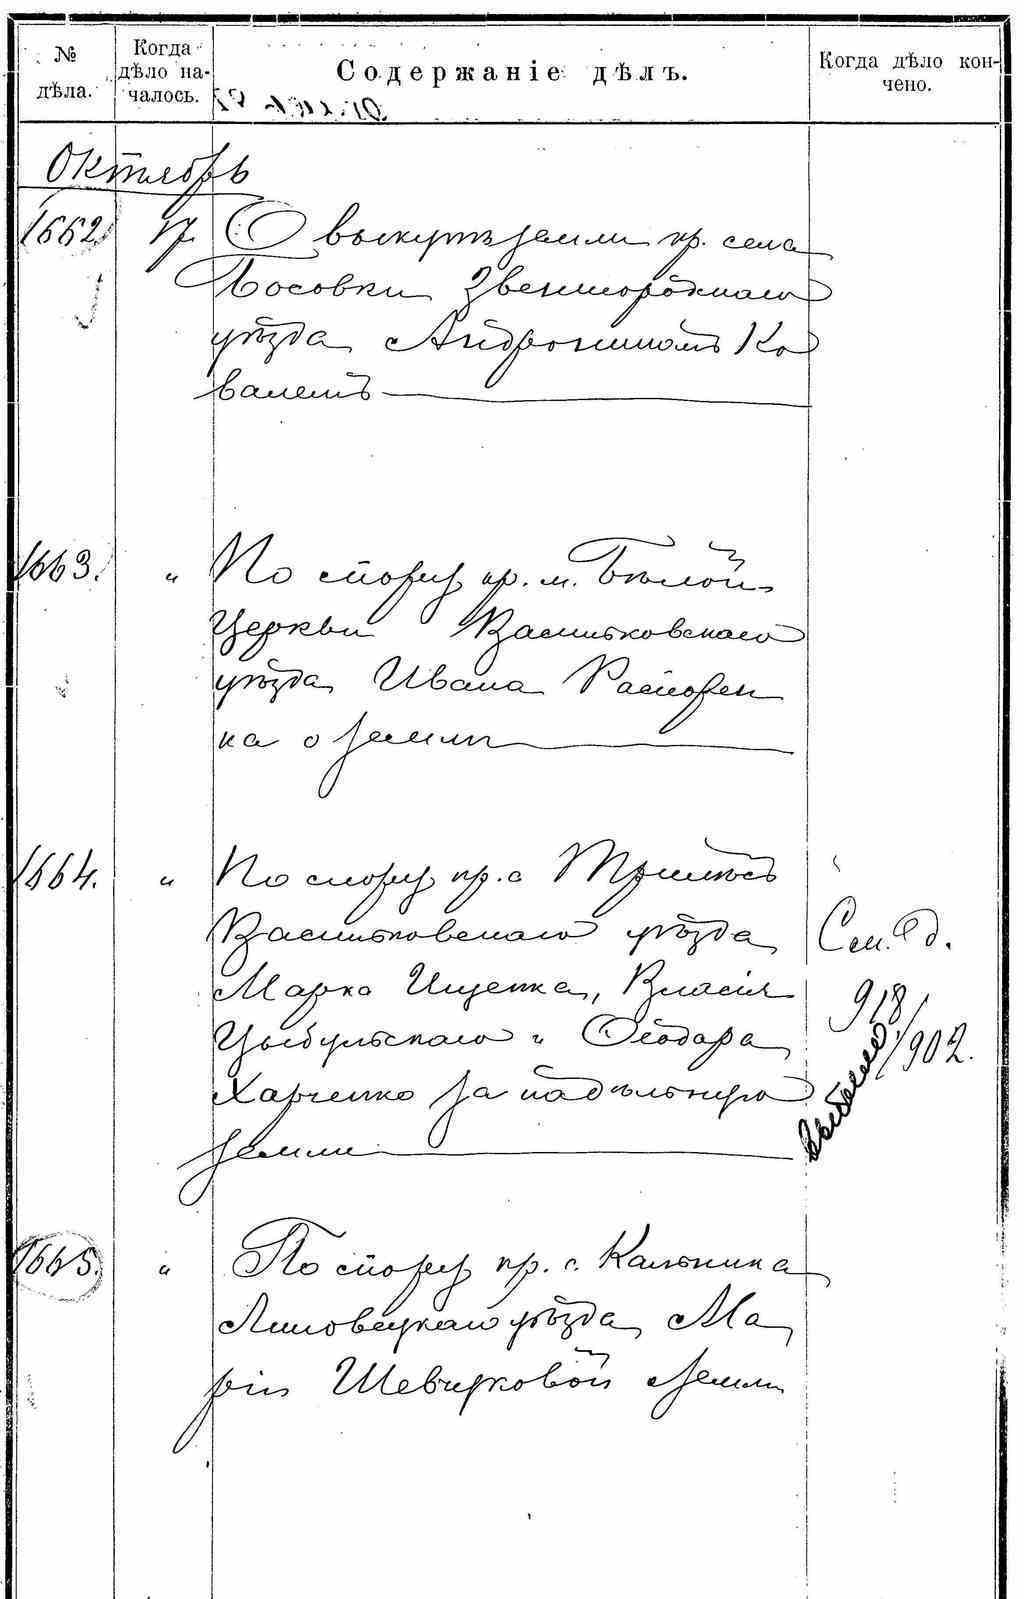 № дѣла.
Когда дѣло на-
чалось.
Содержаніе дѣлъ.
Когда дѣло кон-
чено.
Октябрь
1662. 17. О выкупѣ земли кр. села
Босовки Звенигородскаго
уѣзда Андроникомъ Ко
валемъ
1663. " По спору кр. м. Бѣлой-
Церкви Васильковскаго
уѣзда Ивана
ка о земли
1664. " По спору кр. с
Васильковскаго уѣзда
Марка Ищенка, Власія
Цыбульскаго и Ѳеодора
Харченко за надѣльную
землю
См. д.
918/902.
1665. " По спору кр. с. Кальника
Липовецкаго уѣзда Ма
ріи Шевчуковой о земли